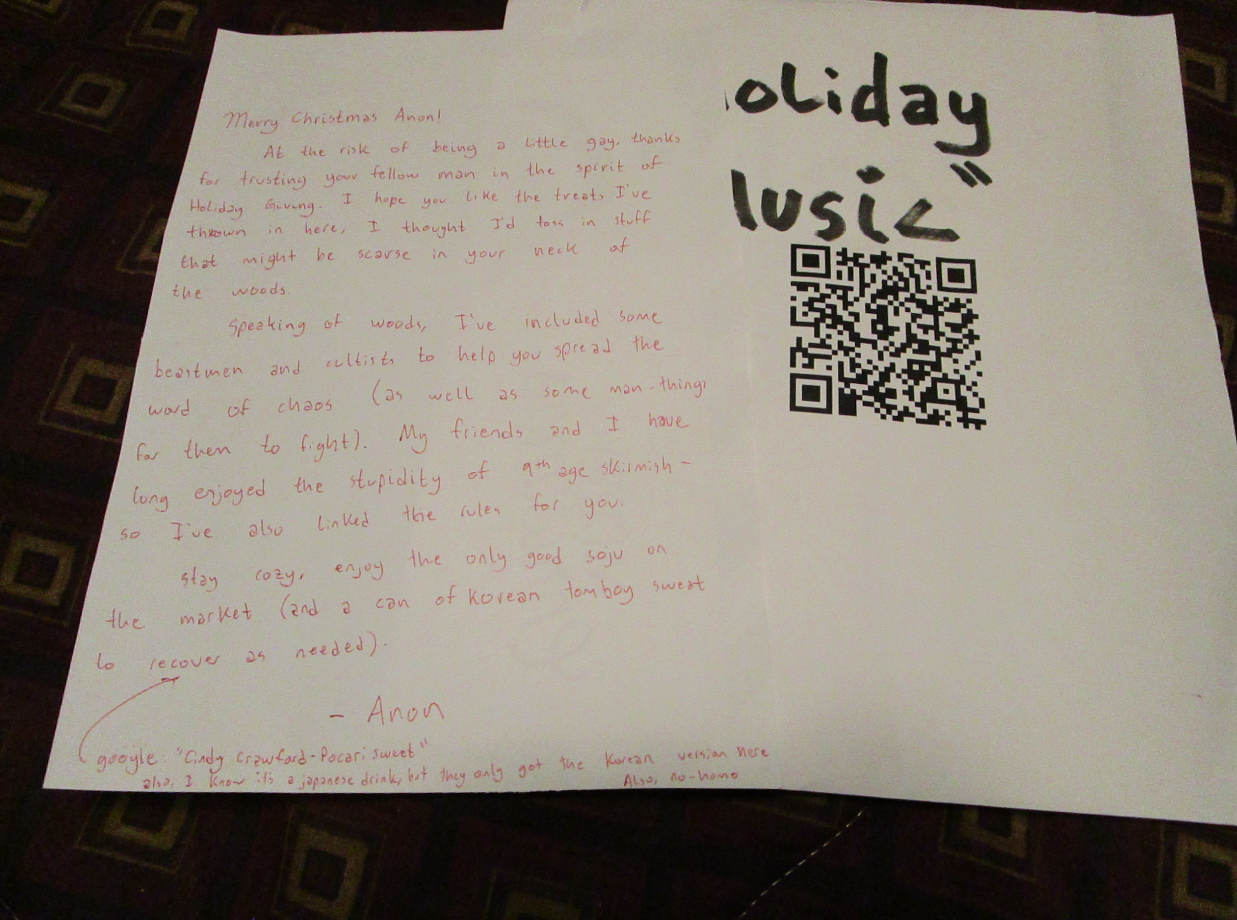 Merry Christmas Anon!
At the risk of being a little gay, thanks
for trusting your fellow man in the spirit of
Holiday Giving. I hope you like the treats I've
thrown in here, I thought I'd toss in stuff
that might be scarse in your neck of
the woods.
Speaking of woods, I've included some
beastmen and cultists to help you spread the
word of chaos (as well as some man-things
for them to fight). My friends and I have
long enjoyed the stupidity of 9th age skirmish-
so I've also linked the rules for you.
Stay cozy, enjoy the only good soju on
the market (and a can of Korean tomboy sweat
to recover as needed).
- Anon
google: "Cindy Crawford-Pocari Sweet"
also, I know it's a japanese drink, but they only got the Korean version here
Also, no-homo
oliday
usic"